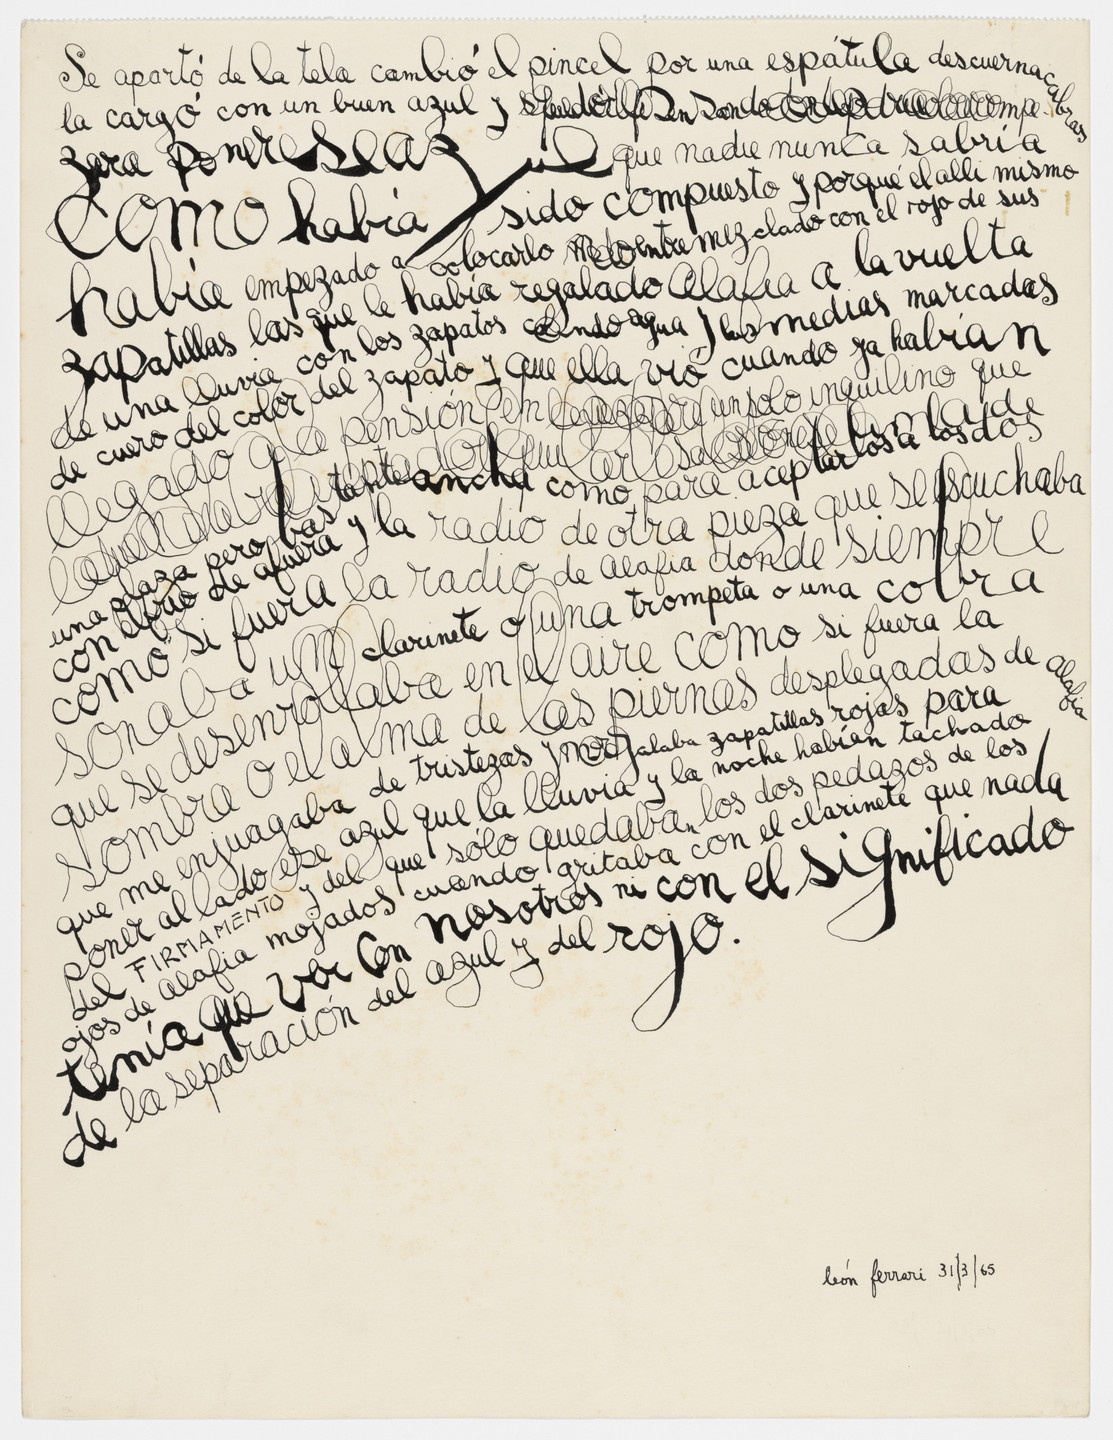 Se apartó de la tela cambió el pincel por una espátula descuernacabras
la cargó con un buen azul y
para poner ese azul que nadie nunca sabría
como había sido compuesto y porqué el alli mismo
había empezado a colocarlo entremezclado con el rojo de sus
zapatillas las que le había regalado Alafia a la vuelta
de una lluvia con los zapatos agua y las medias marcadas
de cuero del color del zapato y que ella vió cuando ya habían
llegado a la pensión en un solo inquilino que
una plaza pero bastante ancha como para aceptarlos a los dos
con de afuera y la radio de otra pieza que se escuchaba
como si fuera la radio de alafia donde siempre
sonaba un clarinete o una trompeta o una cobra
que se desenrollaba en el aire como si fuera la
sombra o el alma de las piernas desplegadas de alafia
que me enjuagaba de tristezas y me regalaba zapatillas rojas para
poner al lado ese azul que la lluvia y la noche habían tachado
del FIRMAMENTO y del que sólo quedaban los dos pedazos de los
ojos de alafia mojados cuando gritaba con el clarinete que nada
tenía que ver con nosotros ni con el significado
de la separación del azul y del rojo.
león ferrari 31/3/65